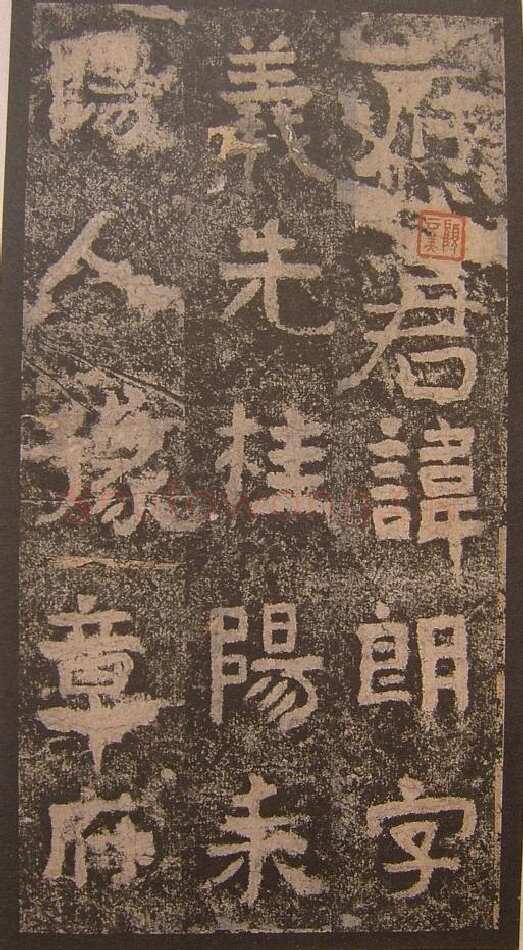 府君諱朗字
義先桂陽耒
陽人豫章府